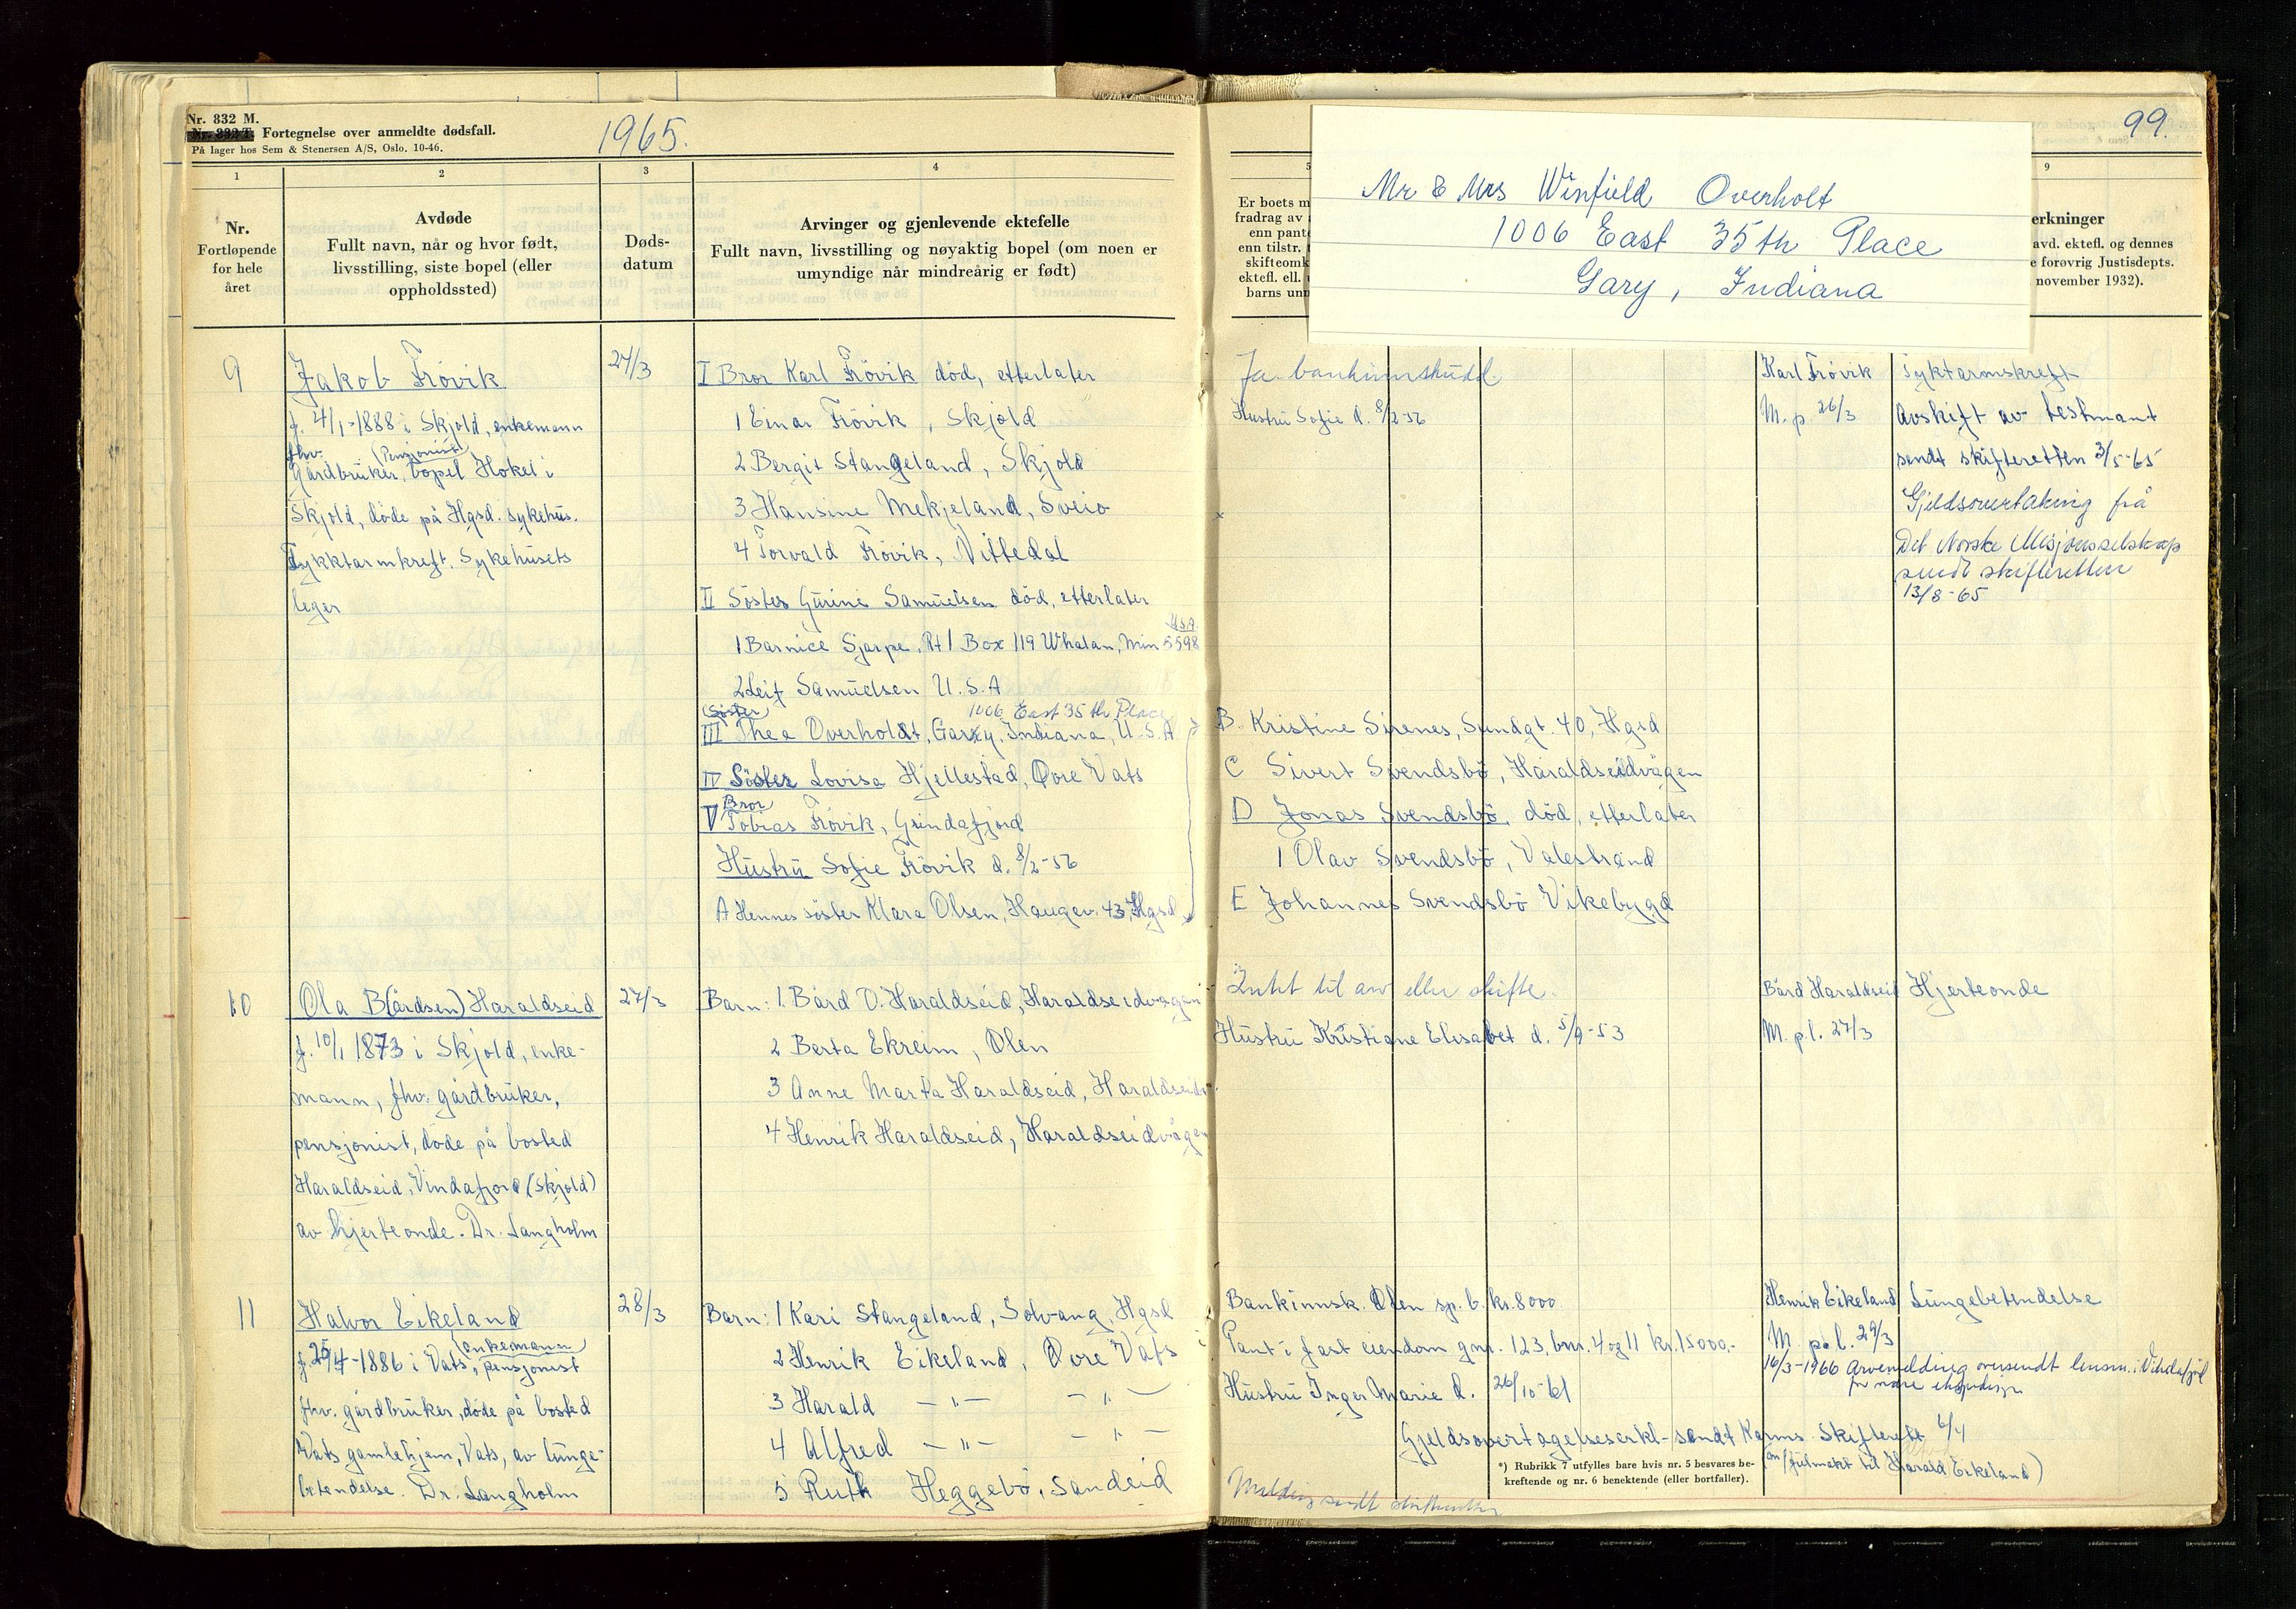 Nr. 832 M.
Nr. 832 T. Fortegnelse over anmeldte dødsfall.
På lager hos Sem & Stenersen A/S, Oslo. 10-46.
1965.
1
2
3
4
Nr.
Fortløpende
for hele
året
Avdøde
Fullt navn, når og hvor født,
livsstilling, siste bopel (eller
oppholdssted)
Døds-
datum
Arvinger og gjenlevende ektefelle
Fullt navn, livsstilling og nøyaktig bopel (om noen er
umyndige når mindreårig er født)
9
Jakob Frövik
f. 4/1-1888 i Skjold, enkemann
fhv. (Pensjonist)
Gårdbruker, bopel Hokel i
Skjold, døde på Hgsd. sykehus.
Tykktarmkreft. Sykehusets
leger
24/3
I Bror Karl Frövik død, etterlater
1 Einar Frövik, Skjold
2 Bergit Stangeland, Skjold
3 Hansine Mekjeland, Sveio
4 Torvald Frövik, Nittedal
II Söster Gurine Samuelsen död, etterlater
U.S.A.
1 Barnice Sjarpe, Rt 1 Box 119 Whalan, Min 5598
2 Leif Samuelsen U.S.A
(Söster) 1006 East 35 th Place
III Thea Overholdt, Gary, Indiana, U.S.A
IV Söster Lovisa Hjellestad, Øvre Vats
Bror
V Tobias Frövik, Grindafjord
Hustru Sofie Frövik d. 8/2-56
A Hennes söster Klara Olsen, Haugev. 43, Hgsd
10
Ola B(årdsen) Haraldseid
f. 10/1 1873 i Skjold, enke-
mann, fhv. gårdbruker,
pensjonist, døde på bosted
Haraldseid, Vindafjord (Skjold)
av hjerteonde. Dr. Langholm
27/3
Barn: 1. Bård O. Haraldseid, Haraldseidvågen
2 Berta Ekreim, Ølen
3 Anne Marta Haraldseid, Haraldseidv.
4 Henrik Haraldseid, Haraldseidvågen
11
Halvor Eikeland
(enkemann)
f. 25/4-1886 i Vats, pensjonist
fhv. gårdbruker, døde på bosted
Vats gamlehjem, Vats, av lunge-
betendelse. Dr. Langholm
28/3
Barn: 1 Kari Stangeland, Solvang, Hgsd
2 Henrik Eikeland, Øvre Vats
3 Harald – " – – " –
4 Alfred – " – – " –
5 Ruth Heggebö, Sandeid
99.
Mr & Mrs Winfield Overholt
1006 East 35 th Place
Gary, Indiana
5
9
Er boets m
fradrag av
enn pant
enn tilstr.
skifteomk
ektefl. ell.
barns unn
erkninger
avd. ektefl. og dennes
e forøvrig Justisdepts.
november 1932).
Ja bankinnskudd
Hustru Sofie d. 8/2-56
Karl Frövik
M. p. 26/3
Tyktarmskreft
Avskift av testmant
sendt skifteretten 3/5-65
Gjeldsovertaking frå
Det Norske Misjonsselskap
sendt skifteretten
13/8-65
B. Kristine Sirenes, Sundgt. 40, Hgsd
C Sivert Svendsbö, Haraldseidvågen
D Jonas Svendsbö, död, etterlater
1 Olav Svendsbö, Valestrand
E Johannes Svendsbö Vikebygd
Intet til arv eller skifte.
Hustru Kristiane Elisabet d. 5/9-53
Bård Haraldseid
M. p.l. 27/3
Hjerteonde
Bankinnsk. Ølen sp. b. kr. 8000
Pant i fast eiendom gnr. 123, bnr. 4 og 11 kr. 15000.-
Hustru Inger Marie d. 26/10-61
Henrik Eikeland
M. p.l. 29/3
Lungebetendelse
16/3-1966 Arvemelding oversendt lensm. i Vindafjord
for
Gjeldsovertagelseserkl. sendt Karms. Skifterett 6/4
(m/fulmakt til Harald Eikeland)
*) Rubrikk 7 utfylles bare hvis nr. 5 besvares be-
kreftende og nr. 6 benektende (eller bortfaller).
Melding sendt skifteretten